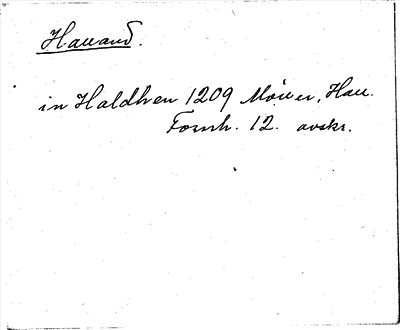 Halland.
in Haldhen 1209 Möller, Hall.
Fornh. 12. avskr.